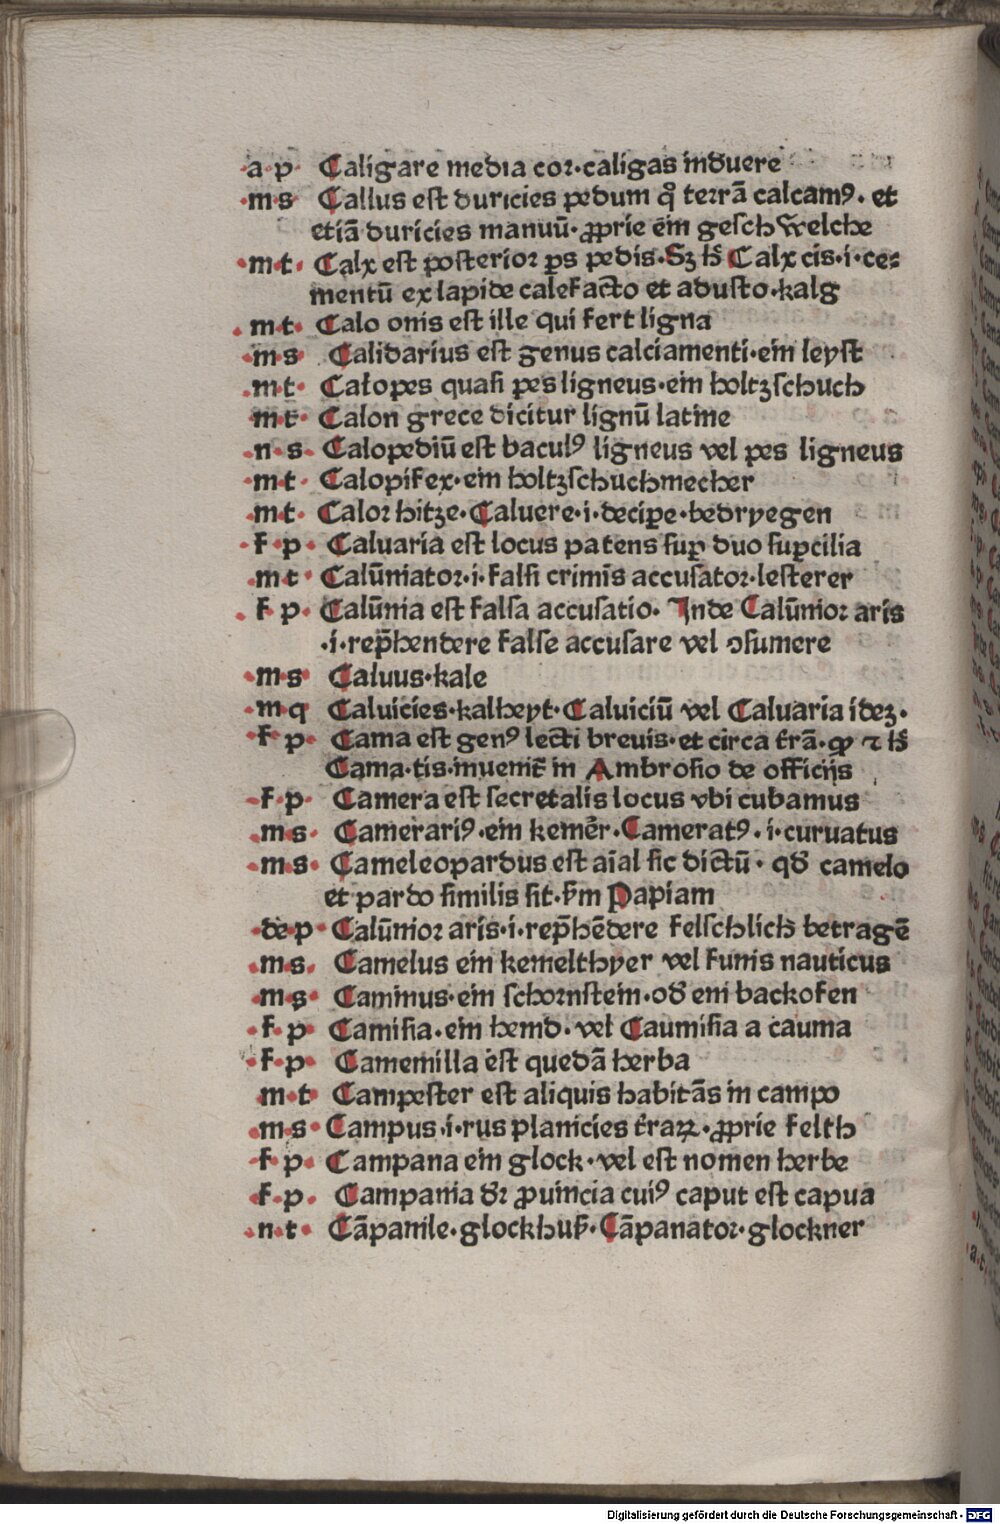 ·a·p· Caligare media cor·caligas induere
·m·s· Callus est duricies pedum qͥ terrā calcamꝰ· et
etiā duricies manuū·ꝓprie ein geschwelche
·m·t· Calx est posterior ps pedis·Sz hꝫ Calx cis·i·ce⸗
mentū ex lapide calefacto et adusto·kalg
·m·t· Calo onis est ille qui fert ligna
·m·s· Calidarius est genus calciamenti·ein leyst
·m·t· Calopes quasi pes ligneus·ein holtzschuch
·m·t· Calon grece dicitur lignū latine
·n·s· Calopediū est baculꝰ ligneus vel pes ligneus
·m·t· Calopifex·ein holtzschuchmecher
·m·t· Calor hitze·Caluere·i·decipe·bedryegen
·f·p· Caluaria est locus patens suꝑ duo suꝑcilia
·m·t· Calūniator·i·falsi criminis accusator·lesterer
·f·p· Calūnia est falsa accusatio· Inde Calūnior aris
·i·rep̄hendere false accusare vel ↄsumere
·m·s· Caluus·kale
·m·q· Caluicies·kalheyt·Caluiciū vel Caluaria idez·
·f·p· Cama est genꝰ lecti brevis·et circa t̄rā·ꝓ ⁊ hꝫ
Cama·tis·inuenit̄ in Ambrosio de officijs
·f·p· Camera est secretalis locus vbi cubamus
·m·s· Camerariꝰ·ein kemēr·Cameratꝰ·i·curuatus
·m·s· Cameleopardus est aīal sic dictū· qđ camelo
et pardo similis sit·s̄m Papiam
·de·p· Calūnior aris·i·rep̄hēdere felschlich betragē
·m·s· Camelus ein kemelthyer vel funis nauticus
·m·s· Caminus·ein schornstein·ođ ein backofen
·f·p· Camisia·ein hemd·vel Caumisia a cauma
·f·p· Camemilla est quedā herba
·m·t· Campester est aliquis habitās in campo
·m·s· Campus·i·rus planicies t̄raꝝ·ꝓprie felth
·f·p· Campana ein glock·vel est nomen herbe
·f·p· Campania đr ꝓuincia cuiꝰ caput est capua
·n·t· Cāpanile·glockhuß·Cāpanator·glockner
Digitalisierung gefördert durch die Deutsche Forschungsgemeinschaft - DFG